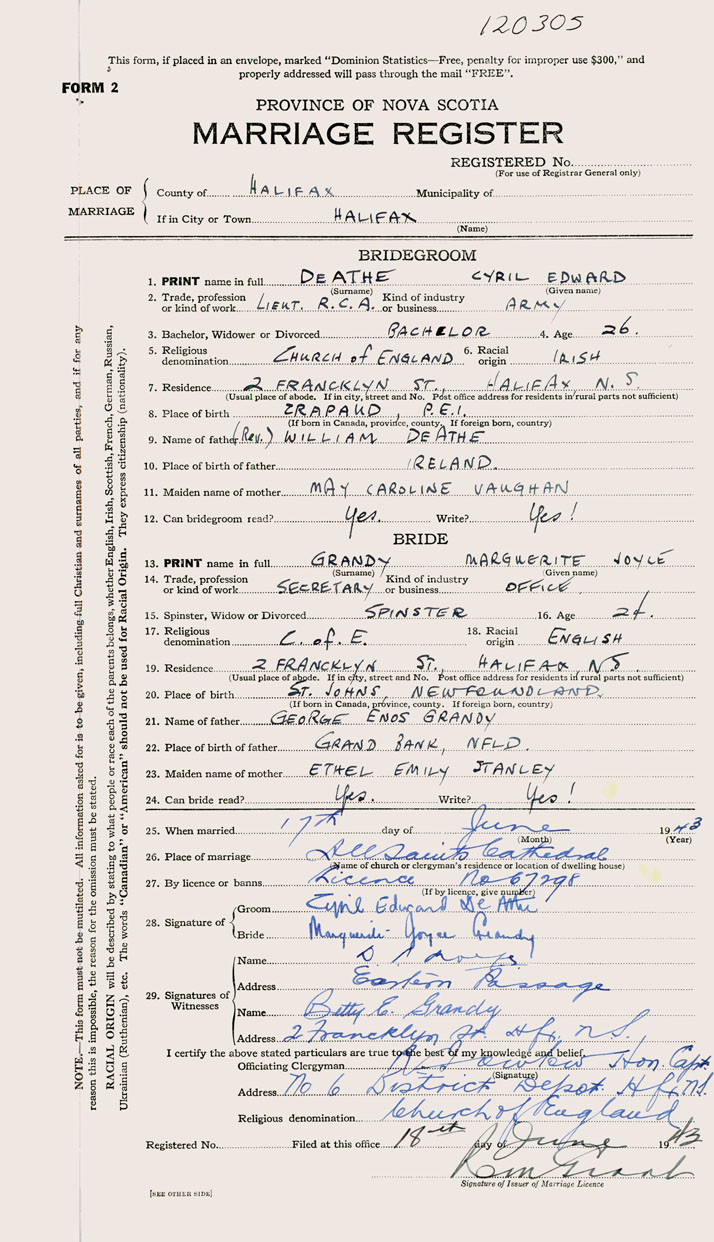 120305
This form, if placed in an envelope, marked "Dominion Statistics—Free, penalty for improper use $300," and
properly addressed will pass through the mail "FREE".
FORM 2
PROVINCE OF NOVA SCOTIA
MARRIAGE REGISTER
REGISTERED No.
(For use of Registrar General only)
PLACE OF MARRIAGE
County of HALIFAX Municipality of
If in City or Town HALIFAX
(Name)
BRIDEGROOM
1. PRINT name in full DEATHE CYRIL EDWARD
(Surname) (Given name)
2. Trade, profession or kind of work LIEUT. R.C.A. Kind of industry or business ARMY
3. Bachelor, Widower or Divorced BACHELOR 4. Age 26.
5. Religious denomination CHURCH of ENGLAND 6. Racial origin IRISH
7. Residence 2 FRANCKLYN ST., HALIFAX, N.S.
(Usual place of abode. If in city, street and No. Post office address for residents in rural parts not sufficient)
8. Place of birth CRAPAUD, P.E.I.
(If born in Canada, province, county. If foreign born, country)
9. Name of father (Rev.) WILLIAM DEATHE
10. Place of birth of father IRELAND.
11. Maiden name of mother MAY CAROLINE VAUGHAN
12. Can bridegroom read? Yes. Write? Yes!
BRIDE
13. PRINT name in full GRANDY MARGUERITE JOYCE
(Surname) (Given name)
14. Trade, profession or kind of work SECRETARY Kind of industry or business OFFICE
15. Spinster, Widow or Divorced SPINSTER 16. Age
17. Religious denomination C. of. E. 18. Racial origin ENGLISH
19. Residence 2 FRANCKLYN ST., HALIFAX, NS
(Usual place of abode. If in city, street and No. Post office address for residents in rural parts not sufficient)
20. Place of birth ST. JOHNS, NEWFOUNDLAND.
(If born in Canada, province, county. If foreign born, country)
21. Name of father GEORGE ENOS GRANDY
22. Place of birth of father GRAND BANK, NFLD.
23. Maiden name of mother ETHEL EMILY STANLEY
24. Can bride read? Yes. Write? Yes!
25. When married 17th day of June 1943
(Month) (Year)
26. Place of marriage All Saints Cathedral
(Name of church or clergyman's residence or location of dwelling house)
27. By licence or banns Licence No 67298
(If by licence, give number)
28. Signature of
Groom Cyril Edward De Athe
Bride Marguerite Joyce Grandy
29. Signatures of Witnesses
Name
Address Eastern Passage
Name Betty E. Grandy
Address 2 Francklyn St. Hfx, N.S.
I certify the above stated particulars are true to the best of my knowledge and belief.
Officiating Clergyman Hon. Capt.
(Signature)
Address No 6 District Depot Hfx, N.S.
Religious denomination Church of England
Registered No. Filed at this office 18th day of June 1943
Signature of Issuer of Marriage Licence
[SEE OTHER SIDE]
NOTE.—This form must not be mutilated. All information asked for is to be given, including full Christian and surnames of all parties, and if for any
reason this is impossible, the reason for the omission must be stated.
RACIAL ORIGIN will be described by stating to what people or race each of the parents belongs, whether English, Irish, Scottish, French, German, Russian,
Ukrainian (Ruthenian), etc. The words "Canadian" or "American" should not be used for Racial Origin. They express citizenship (nationality).